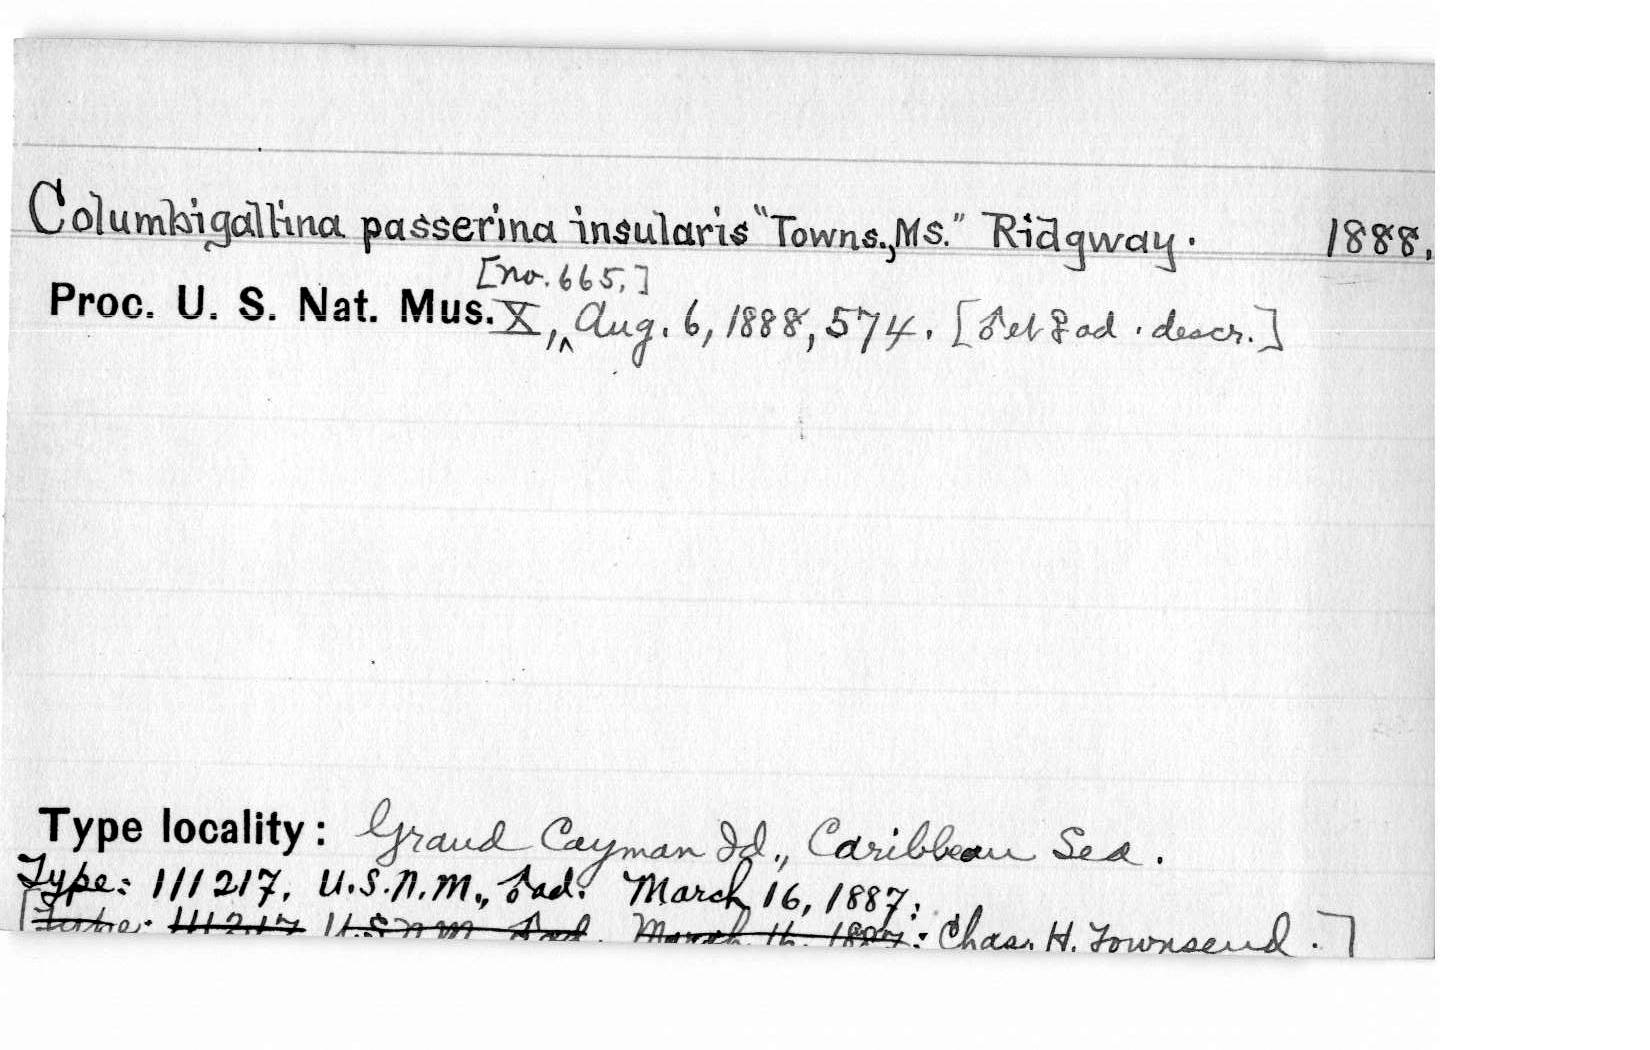 Columbigallina passerina insularis "Towns., MS." Ridgway. 1888.
[no. 665,]
Proc. U. S. Nat. Mus. X, ^ Aug. 6, 1888, 574. [♂ et ♀ ad. descr.]
Type locality: Grand Cayman Id., Caribbean Sea.
Type: 111217, U.S.N.M., ♂ ad. March 16, 1887;
[Type: 111217 U.S.N.M. ♂ ad. March 16, 1887; Chas. H. Townsend.]